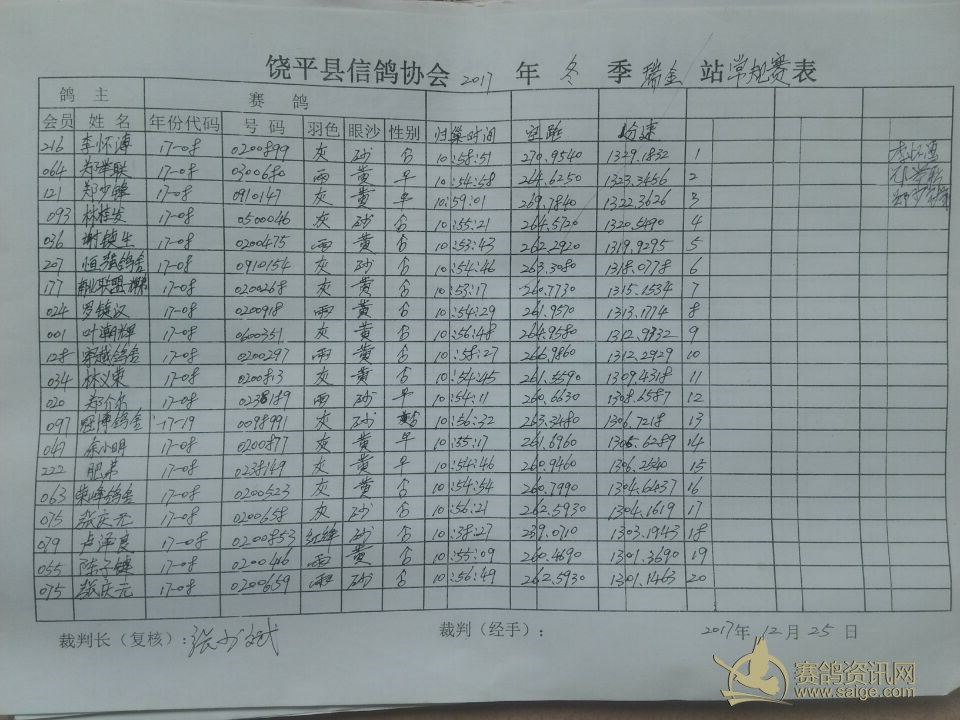 饶平县信鸽协会 2017 年 冬 季 瑞金 站 常规赛 表
鸽 主 赛 鸽
会员 姓 名 年份代码 号 码 羽色 眼沙 性别 归巢时间 空距 分速
216 李怀溥 17-08 0200899 灰 砂 合 10:58:51 270.9540 1329.1832 1 李怀溥
064 郑举联 17-08 0300680 雨 黄 早 10:54:58 264.6250 1323.3456 2
121 郑少锋 17-08 0910147 灰 黄 早 10:59:01 269.7840 1322.3626 3
093 林桂发 17-08 0500046 灰 砂 合 10:55:21 264.5720 1320.5490 4
036 谢镇生 17-08 0200475 雨 黄 合 10:53:43 262.2920 1319.9295 5
207 恒强鸽舍 17-08 0910154 灰 砂 合 10:54:46 263.3080 1318.0778 6
177 17-08 0200268 灰 黄 合 10:53:17 260.7730 1315.1534 7
024 罗镇汉 17-08 0200918 雨 黄 合 10:54:29 261.9570 1313.1774 8
001 叶潮辉 17-08 0600351 灰 黄 合 10:56:48 264.9580 1312.9832 9
128 鸽舍 17-08 0200297 雨 黄 合 10:58:27 266.9860 1312.2929 10
034 林义荣 17-08 0200813 灰 黄 合 10:54:45 261.5590 1309.4318 11
020 郑介弟 17-08 0238189 雨 砂 早 10:54:11 260.6630 1308.6587 12
097 冠博鸽舍 17-19 0098991 灰 砂 10:56:32 263.3480 1306.7218 13
049 余小明 17-08 0200877 灰 黄 早 10:55:17 261.6960 1306.6289 14
222 肥弟 17-08 0238149 灰 黄 早 10:54:46 260.9460 1306.2540 15
063 荣峰鸽舍 17-08 0200523 灰 黄 合 10:54:54 260.7990 1304.6437 16
075 张庆元 17-08 0200658 灰 砂 合 10:56:21 262.5930 1304.1619 17
079 卢泽良 17-08 0200853 红绛 砂 合 10:38:27 239.0710 1303.1943 18
055 陈子镇 17-08 0200446 雨 黄 合 10:55:09 260.4690 1301.3690 19
075 张庆元 17-08 0200659 雨 砂 合 10:56:49 262.5930 1301.1463 20
裁判长（复核）：张少斌 裁判（经手）： 2017年 12 月 25 日
赛鸽资讯网
www.saige.com